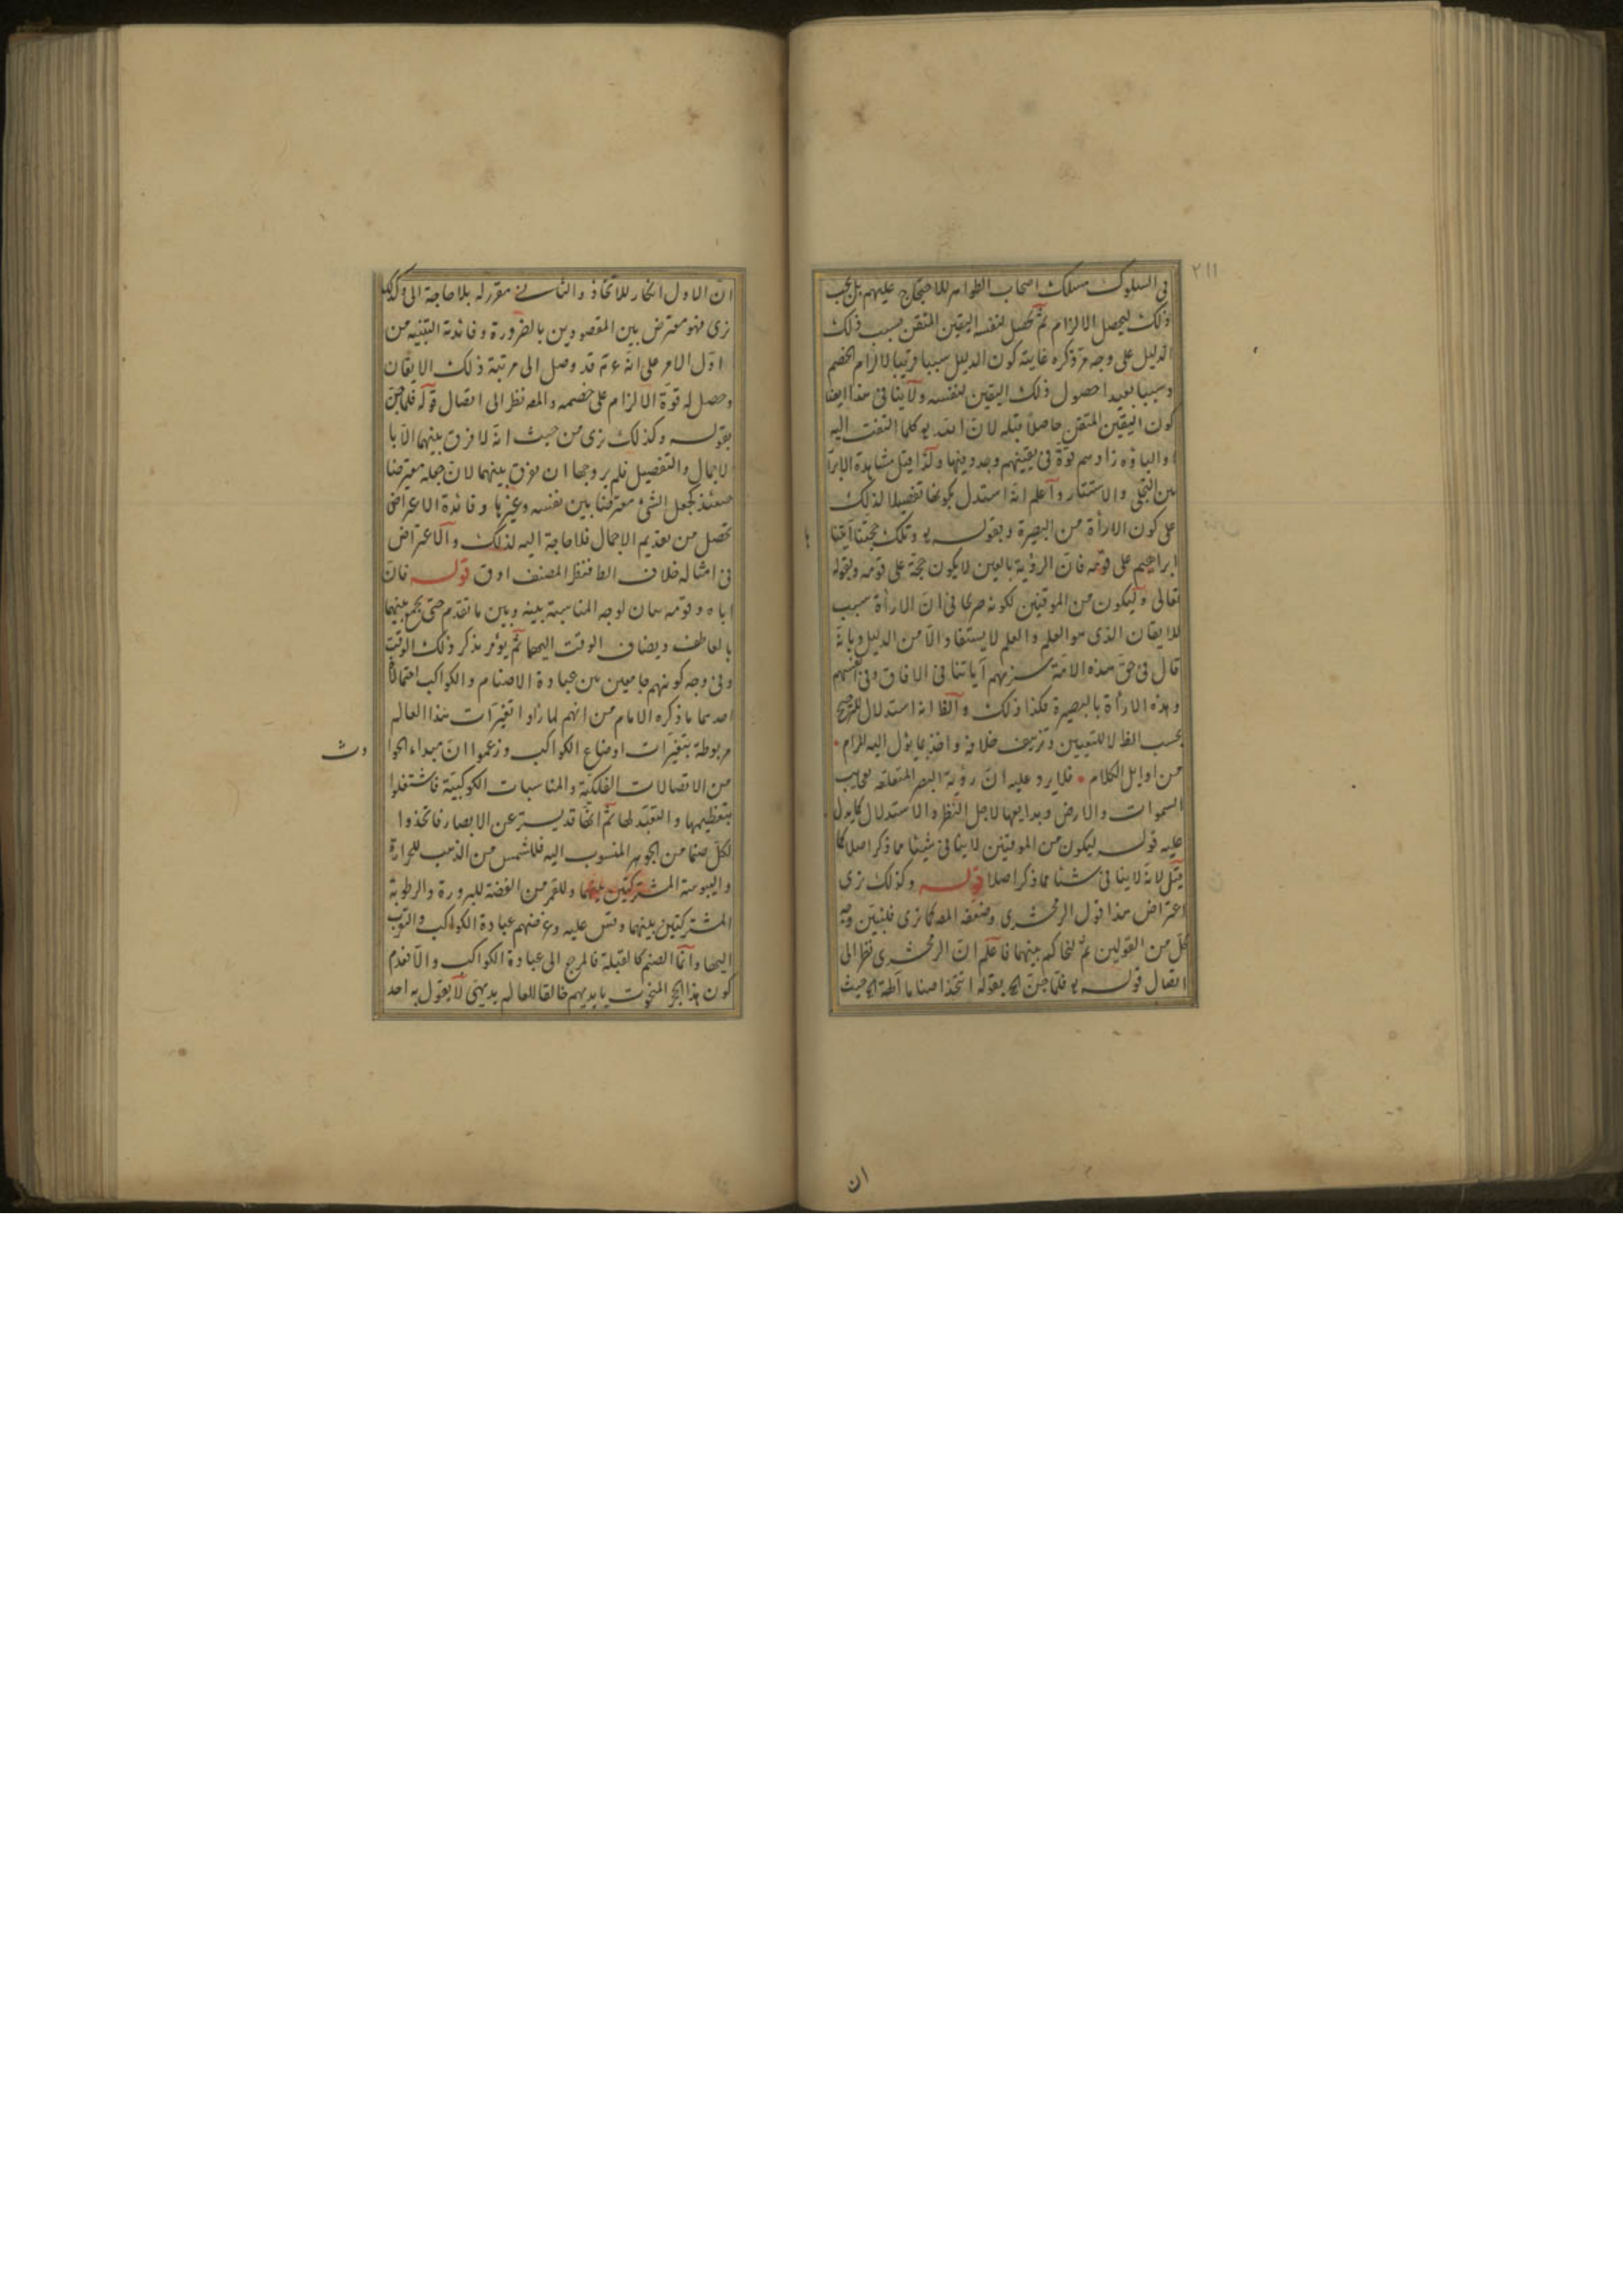 ٢١١
في السلوك مسلك اصحاب الظواهر للاحتجاج عليهم بل يجب
ذلك ليحصل الالزام ثم تحصل لنفسه اليقين المتقن بسبب ذلك
الدليل على وجه مر ذكره غايته كون الدليل سببا قريبا لالزام الخصم
وسببا بعيدا حصول ذلك اليقين لنفسه ولا ينافى هذا ايضا
كون اليقين المتقن حاصلا قبله لان كلما التفت اليه
قوة فى يقينهم ولذا قيل مشاهدة الابرار
بين التجلى والاستتار واعلم انه استدل بكونها تفصيلا لذلك
على كون الارأة من البصيرة وبقوله وتلك حجتنا آتينا
ابراهيم على قومه فان الرؤية بالعين لا يكون حجة على قومه وبقوله
تعالى وليكون من الموقنين لكونه صريحا فى ان الارأة سبب
للايقان الذى هو العلم والعلم لا يستفاد الا من الدليل وبانه
قال فى حق هذه الامة سنريهم آياتنا فى الافاق وفى انفسهم
وهذه الارأة بالبصيرة فكذا ذلك والظا انه استدلال للترجيح
بحسب الظا لا للتعيين وتزييف خلافه واخذ بما يؤل اليه المرام
من اوايل الكلام فلا يرد عليه ان رؤية البصر المتعلقه بعجايب
السموات والارض وبدايعها لاجل النظر والاستدلال كما يدل
عليه قوله ليكون من الموقنين لا ينافى شيئا مما ذكر اصلا كما
قيل لانه لا ينافى شيئا مما ذكر اصلا قوله وكذلك نرى
اعتراض هذا قول الزمخشرى وضعفه المص كما ترى فلنبين وجه
كل من القولين ثم لنحاكم بينهما فاعلم ان الزمخشرى نظر الى
اتصال قوله فلما جن الخ بقوله اتتخذ اصناما آلهة الخ حيث
ان
ان الاول انكار للاتخاذ والثانى مقرر له بلا حاجة الى وكذلك
نرى فهو معترض بين المقصودين بالضرورة وفائدته التنبيه من
اول الامر على انه ع م قد وصل الى مرتبة ذلك الايقان
وحصل له قوة الالزام على خصمه والمص نظر الى اتصال قوله فلما جن
بقوله وكذلك نرى من حيث انه لا فرق بينهما الا با
لاجمال والتفصيل فلم ير وجها ان يفرق بينهما لان جعله معترضا
حينئذ كجعل الشئ معترضا بين نفسه وغيرها وفائدة الاعتراض
تحصل من تقديم الاجمال فلا حاجة اليه لذلك والاعتراض
فى امثاله خلاف الظا فنظر المصنف ادق قوله فان
اباه وقومه بيان لوجه المناسبة بينه وبين ما تقدم حتى يجمع بينهما
بالعاطف ويضاف الوقت اليهما ثم يؤمر بذكر ذلك الوقت
وفى وجه كونهم جامعين بين عبادة الاصنام والكواكب احتمالات
احدهما ما ذكره الامام من انهم لما رأوا تغيرات هذا العالم
مربوطة بتغيرات اوضاع الكواكب وزعموا ان مبداء الحوا
دث
من الاتصالات الفلكية والمناسبات الكوكبية فاشتغلوا
بتعظيمها والتعبد لها ثم انها قد يستر عن الابصار فاتخذوا
لكل صنما من الجوهر المنسوب اليه فللشمس من الذهب للحرارة
واليبوسة المشتركتين بينهما وللقمر من الفضة للبرودة والرطوبة
المشتركتين بينهما وقس عليه وغرضهم عبادة الكواكب والتقرب
اليها وانما الصنم كالقبلة فالمرجع الى عبادة الكواكب والا فعدم
كون هذا الحجر المنحوت بايديهم خالقا للعالم بديهى لا يقول به احد